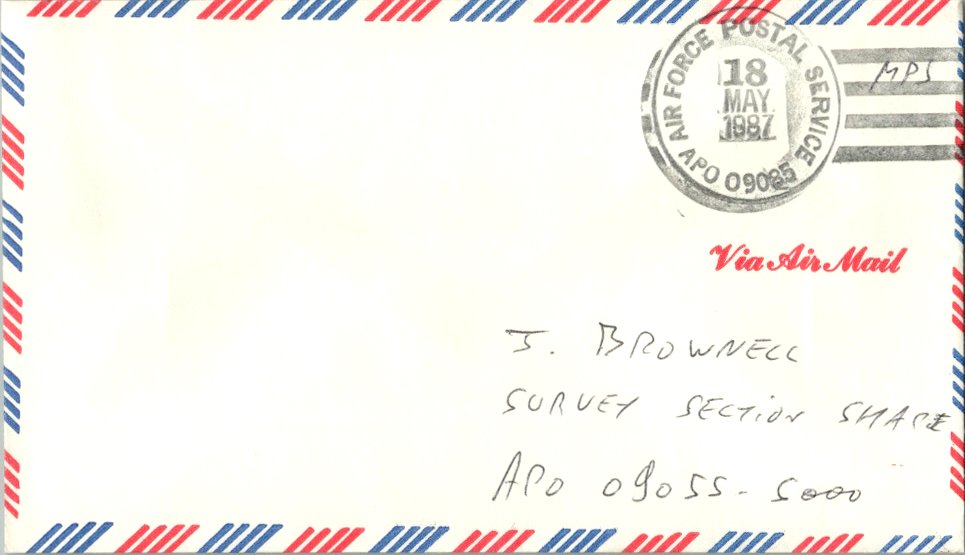 AIR FORCE POSTAL SERVICE
18
MAY
1987
APO 09085
MPS
Via Air Mail
J. BROWNELL
SURVEY SECTION SHAPE
APO 09055-5000